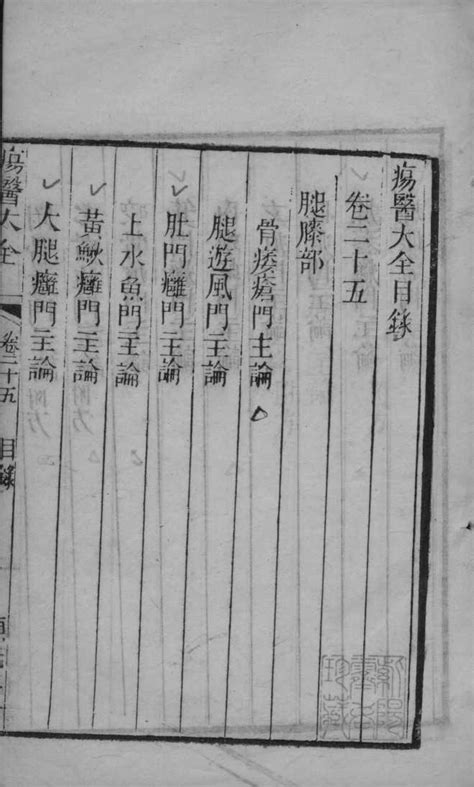 瘍醫大全目錄
卷二十五
腿膝部
骨痿瘡門主論
腿遊風門主論
肚門癰門主論
上水魚門主論
黃鰍癰門主論
大腿癰門主論
瘍醫大全
卷二十五
目錄